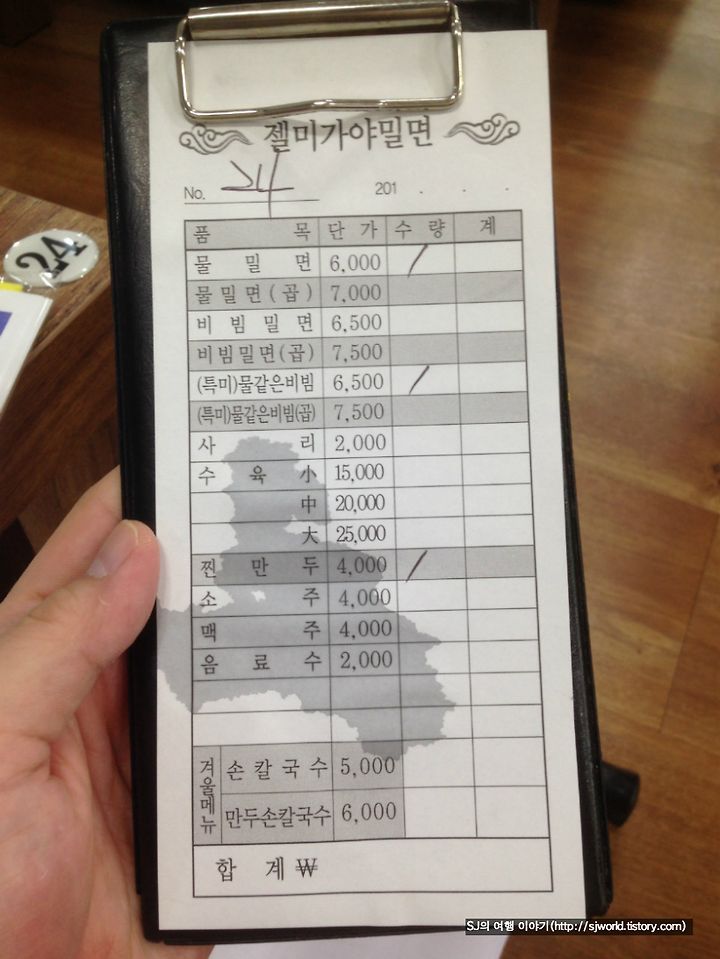 젤미가야밀면
No. 24 201 . . .
24
품 목 단 가 수 량 계
물 밀 면 6,000 /
물밀면(곱) 7,000
비 빔 밀 면 6,500
비빔밀면(곱) 7,500
(특미)물같은비빔 6,500 /
(특미)물같은비빔(곱) 7,500
사 리 2,000
수 육 小 15,000
中 20,000
大 25,000
찐 만 두 4,000 /
소 주 4,000
맥 주 4,000
음 료 수 2,000
겨울메뉴
손 칼 국 수 5,000
만두손칼국수 6,000
합 계 ₩
SJ의 여행 이야기(http://sjworld.tistory.com)